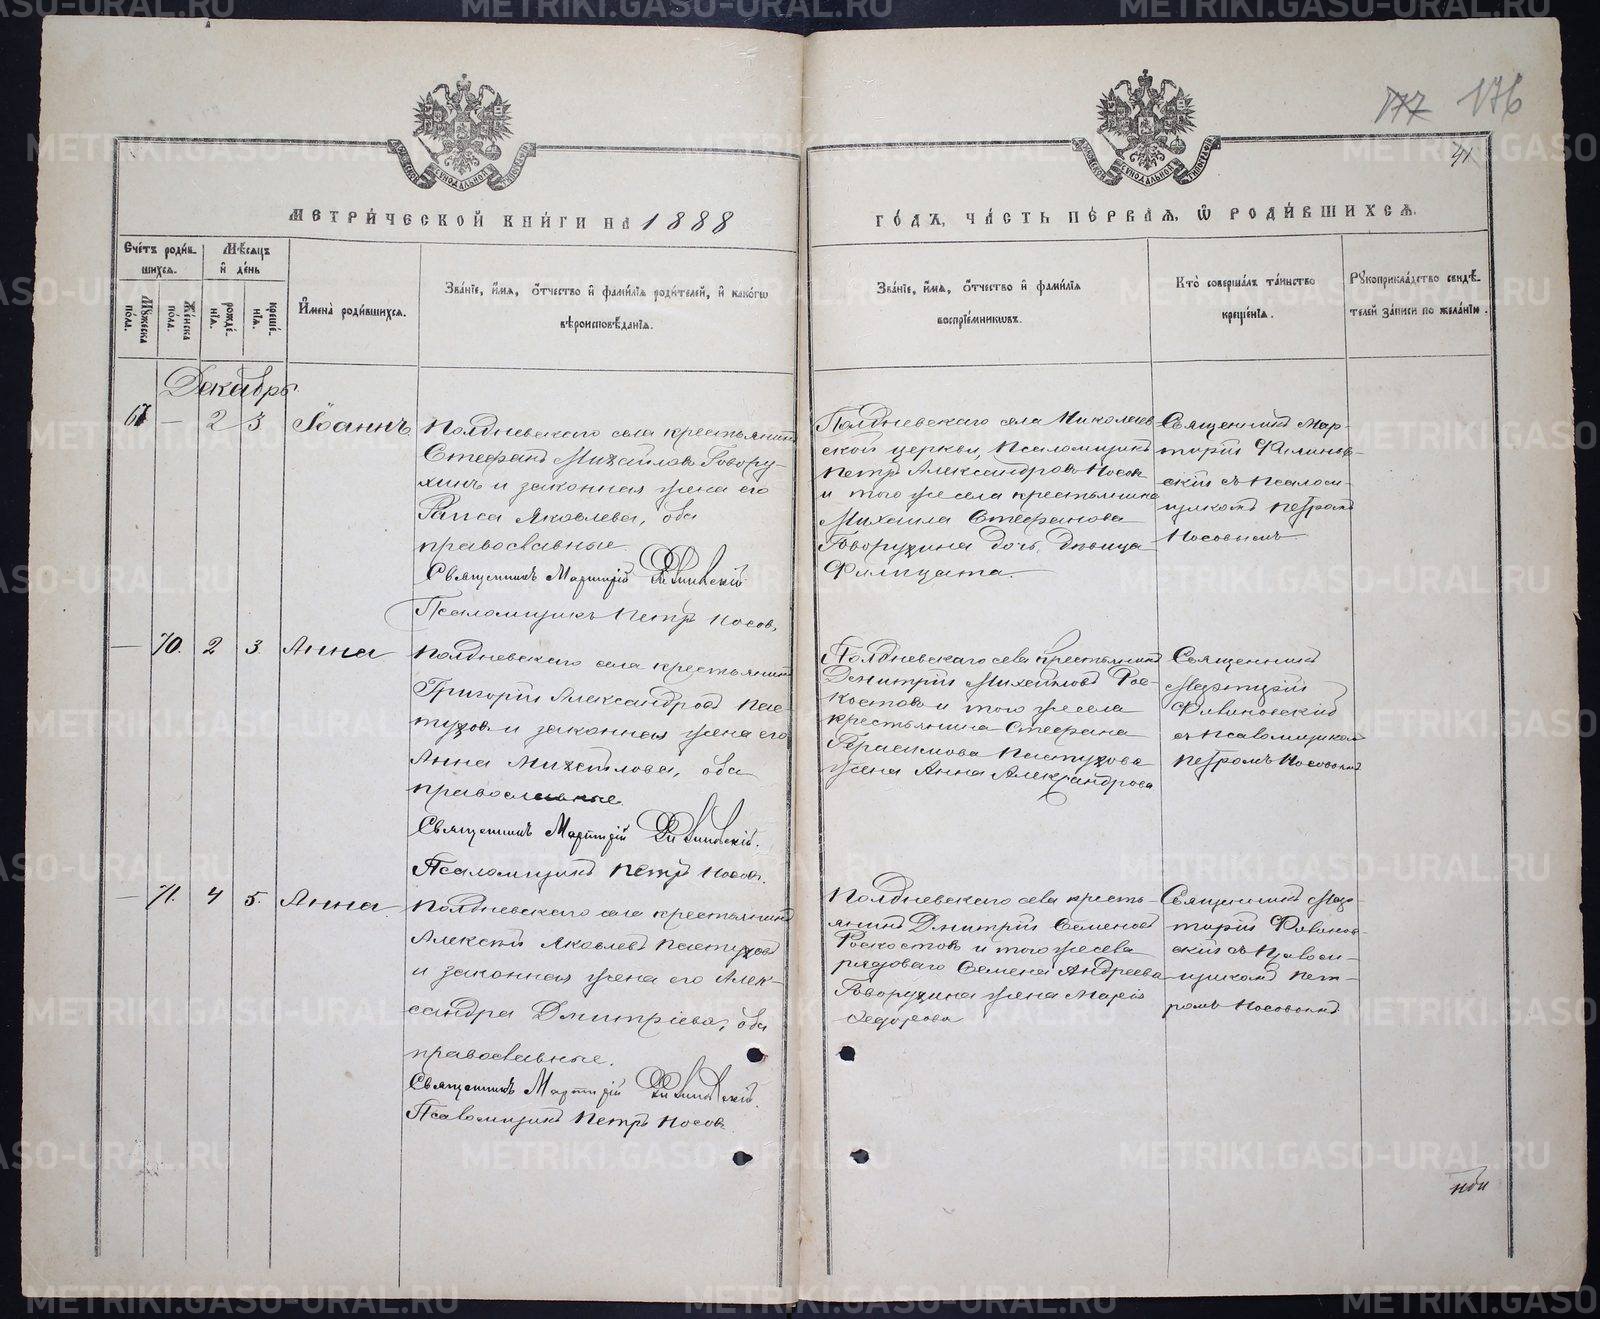 METRIKI.GASO-URAL.RU
177 176
41
МЕТРИЧЕСКОЙ КНИГИ НА 1888
ГОДЪ, ЧАСТЬ ПЕРВАЯ, Ѿ РОДИВШИХСЯ.
Счетъ родившихся.
Мѣсяцъ и день
Мужеска пола.
Женска пола.
рожденія.
крещенія.
Имена родившихся.
Званіе, имя, отчество и фамилія родителей, и какогѡ вѣроисповѣданія.
Званіе, имя, отчество и фамилія воспріемникѡвъ.
Кто совершалъ таинство крещенія.
Рукоприкладство свидѣтелей записи по желанію.
Декабрь
67 — 2 3 Іоаннъ
Полдневскаго села крестьянинъ
Стефанъ Михайловъ Говору-
хинъ и законная жена его
Раиса Яковлева, оба
православные.
Священникъ Мартирій Филиновскій
Псаломщикъ Петръ Носовъ.
Полдневскаго села Николаев-
ской церкви, Псаломщикъ
Петръ Александровъ Носовъ
и того же села крестьянина
Михаила Стефанова
Говорухина дочь, девица
Филицата.
Священникъ Мар-
тирій Филинов-
скій съ Псалом-
щикомъ Петромъ
Носовымъ
— 70. 2 3. Анна
Полдневскаго села крестьянинъ
Григорій Александровъ Пас-
туховъ и законная жена его
Анна Михайлова, оба
православные
Священникъ Мартирій Филиновскій.
Псаломщикъ Петръ Носовъ.
Полдневскаго села крестьянинъ
Димитрій Михайловъ Рос-
костовъ и того же села
крестьянина Стефана
Герасимова Пастухова
жена Анна Александрова
Священникъ
Мартирій
Филиновскій
съ Псаломщикомъ
Петромъ Носовымъ
— 71. 4 5. Анна.
Полдневскаго села крестьянинъ
Алексѣй Яковлевъ Пастуховъ
и законная жена его Алек-
сандра Дмитріева, оба
православные.
Священникъ Мартирій Филиновскій.
Псаломщикъ Петръ Носовъ.
Полдневскаго села кресть-
янинъ Дмитрій Семеновъ
Роскостовъ и того же села
рядоваго Семена Андреева
Говорухина жена Марія
Федорова
Священникъ Мар-
тирій Филинов-
скій съ Псалом-
щикомъ Пет-
ромъ Носовымъ